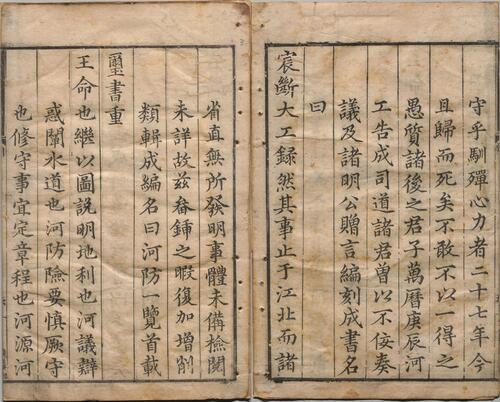 守乎馴殫心力者二十七年今
且歸而死矣不敢不以一得之
愚質諸後之君子萬曆庚辰河
工告成司道諸君曾以不佞奏
議及諸明公贈言編刻成書名
曰
宸斷大工録然其事止于江北而諸
省直無所發明事體未備檢閱
未詳故兹畚鍤之暇復加增削
類輯成編名曰河防一覽首載
璽書重
王命也繼以圖說明地利也河議辯
惑闡水道也河防險要慎厥守
也修守事宜定章程也河源河